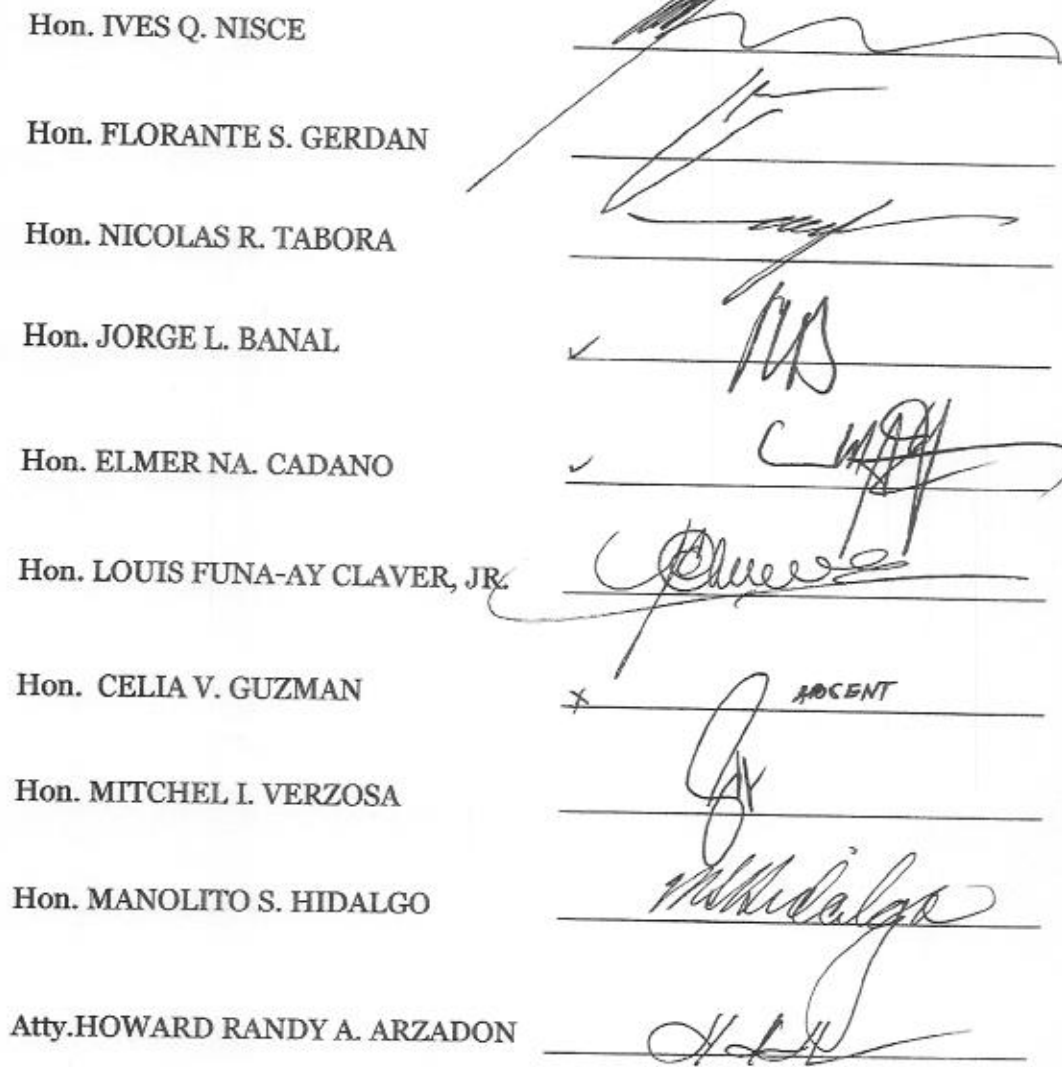 Hon. IVES Q. NISCE
Hon. FLORANTE S. GERDAN
Hon. NICOLAS R. TABORA
Hon. JORGE L. BANAL
Hon. ELMER NA. CADANO
Hon. LOUIS FUNA-AY CLAVER, JR.
Hon. CELIA V. GUZMAN ABSENT
Hon. MITCHEL I. VERZOSA
Hon. MANOLITO S. HIDALGO MSHidalgo
Atty.HOWARD RANDY A. ARZADON